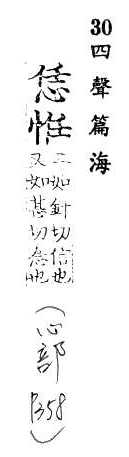 30 四聲篇海
恁
二如針切信也
又如甚切念也
(心部 P358)